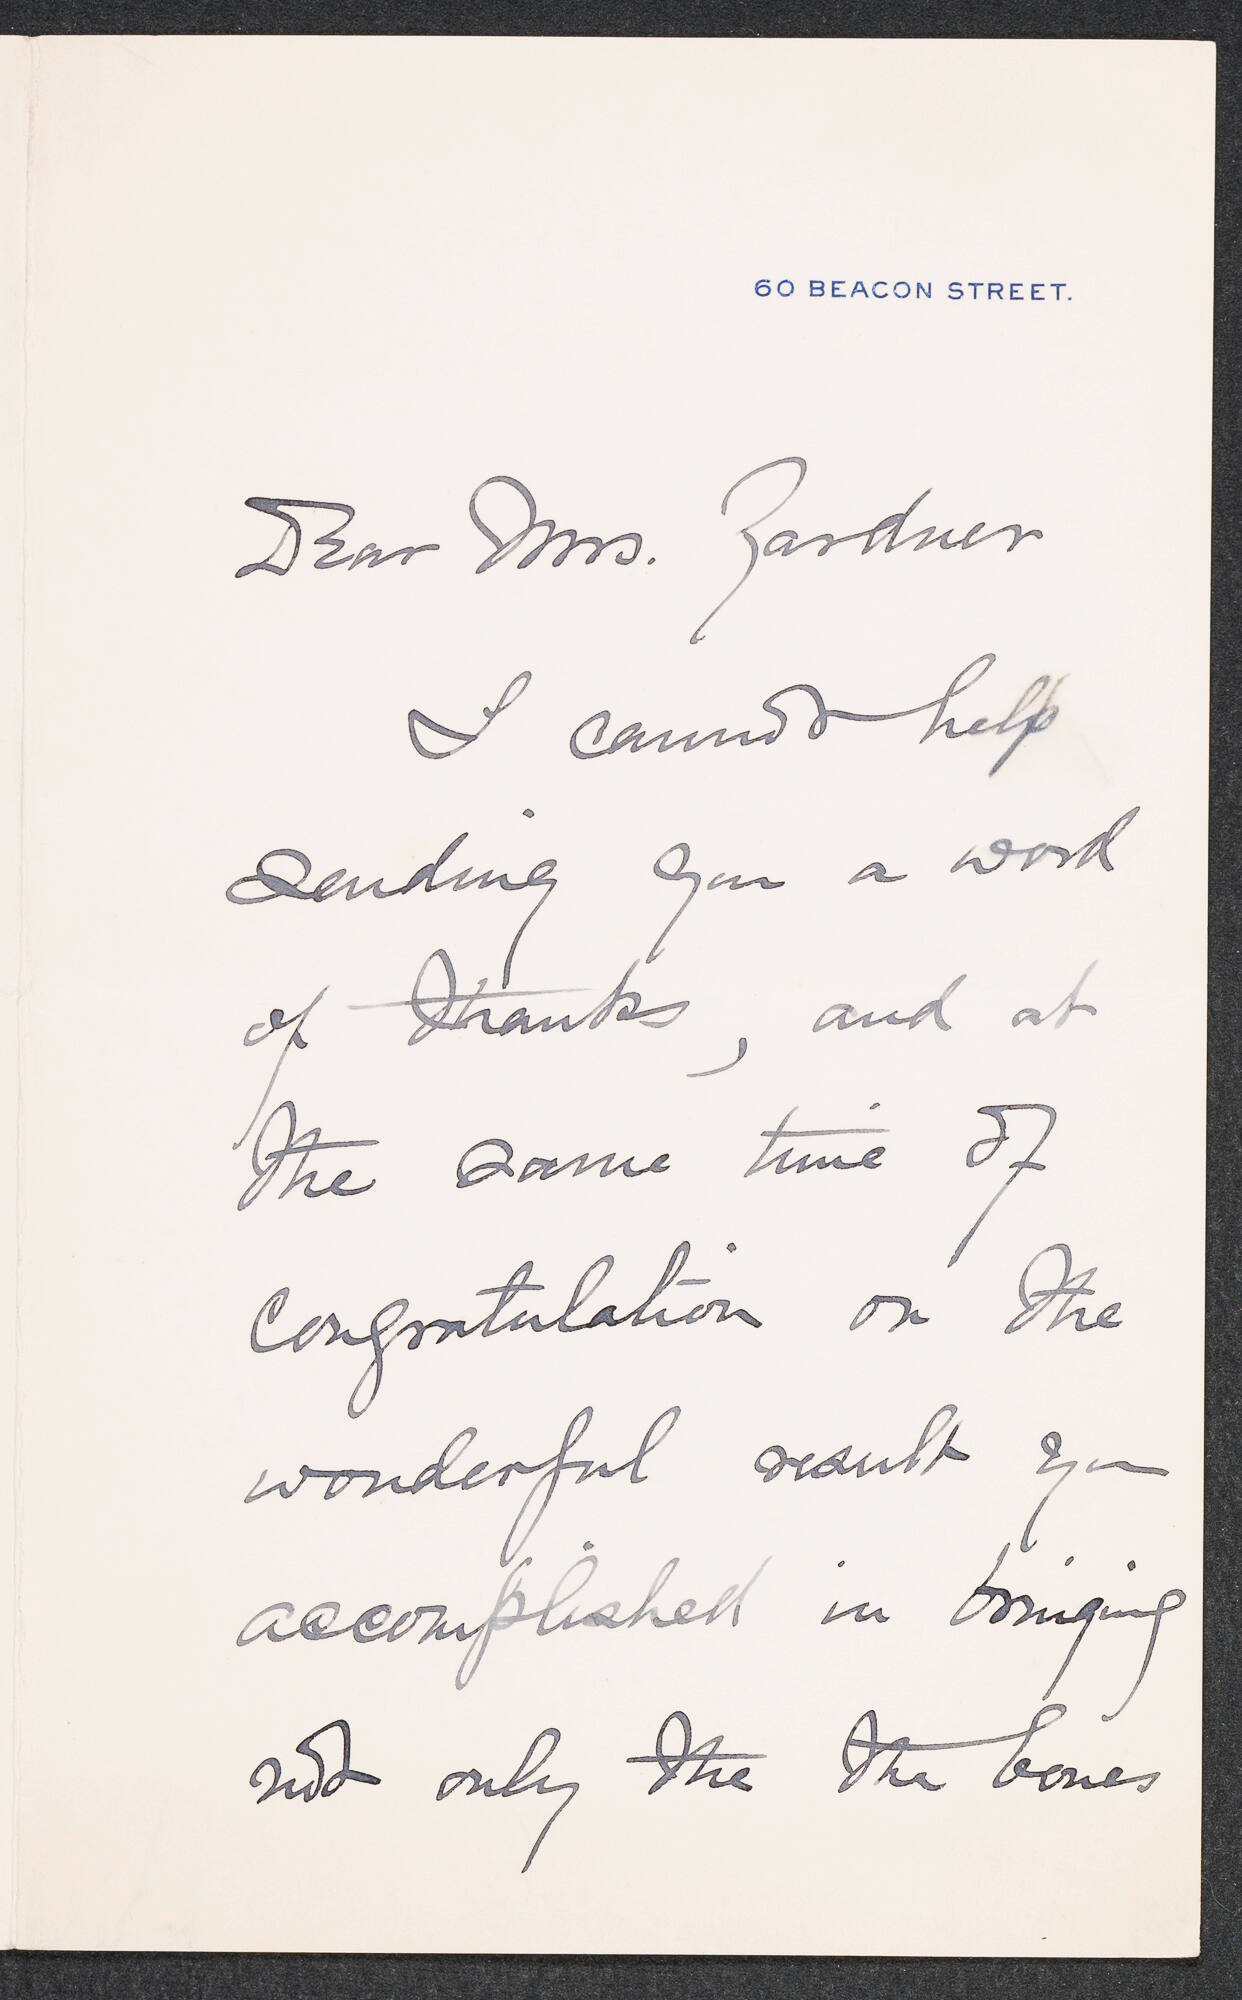 60 BEACON STREET.
Dear Mrs. Gardner
I cannot help
sending you a word
of thanks, and at
the same time of
congratulation on the
wonderful result you
accomplished in bringing
not only the the bones